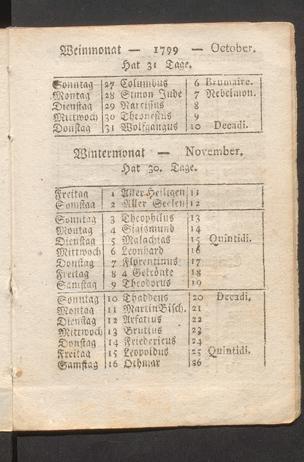 Weinmonat — 1799 — October.
Hat 31 Tage.
Sonntag 27 Columbus 6 Brumaire.
Montag 28 Simon Jude 7 Nebelmon.
Dienstag 29 Narcissus 8
Mittwoch 30 Theonestus 9
Donstag 31 Wolfgangus 10 Decadi.
Wintermonat — November.
Hat 30. Tage.
Freitag 1 Aller Heiligen 11
Samstag 2 Aller Seelen 12
Sonntag 3 Theophilus 13
Montag 4 Sigismund 14
Dienstag 5 Malachias 15 Quintidi.
Mittwoch 6 Leonhard 16
Donstag 7 Florentinus 17
Freitag 8 4 Gekrönte 18
Samstag 9 Theodorus 19
Sonntag 10 Thaddeus 20 Decadi.
Montag 11 Martin Bisch. 21
Dienstag 12 Arsatius 22
Mittwoch 13 Brutius 23
Donstag 14 Friedericus 24
Freitag 15 Leopoldus 25 Quintidi.
Samstag 16 Othmar 26